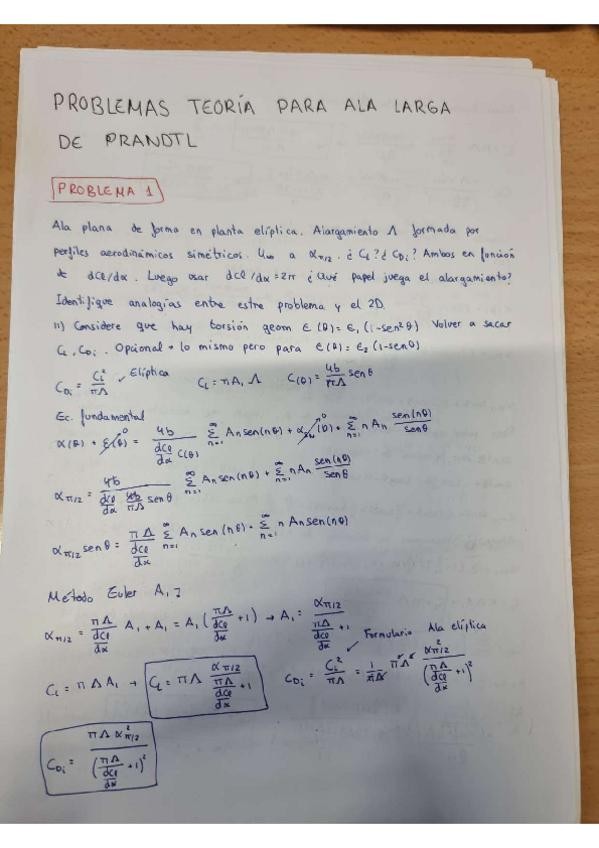 PROBLEMAS TEORÍA PARA ALA LARGA
DE PRANDTL
PROBLEMA 1
Ala plana de forma en planta elíptica. Alargamiento Λ formada por
perfiles aerodinámicos simétricos. U∞ a α_{π/2}. ¿C_L? ¿C_{Di}? Ambos en función
de dCl/dα. Luego usar dCl/dα = 2π ¿Qué papel juega el alargamiento?
Identifique analogías entre estre problema y el 2D.
11) Considere que hay torsión geom ε(θ) = ε₁(1-sen²θ) Volver a sacar
C_L, C_{Di}. Opcional + lo mismo pero para ε(θ) = ε₂(1-senθ)
C_{Di} = C_L²/(πΛ) Elíptica C_L = πA₁Λ C(θ) = 4b/(πΛ) senθ
Ec. fundamental
α(θ) + ε(θ)⁰ = 4b/(dCl/dα C(θ)) Σ_{n=1}^∞ A_n sen(nθ) + α⁰ + Σ_{n=1}^∞ n A_n sen(nθ)/senθ
α_{π/2} = 4b/(dCl/dα 4b/(πΛ) senθ) Σ_{n=1}^∞ A_n sen(nθ) + Σ_{n=1}^∞ n A_n sen(nθ)/senθ
α_{π/2} senθ = πΛ/(dCl/dα) Σ_{n=1}^∞ A_n sen(nθ) + Σ_{n=1}^∞ n A_n sen(nθ)
Método Euler A₁]
α_{π/2} = πΛ/(dCl/dα) A₁ + A₁ = A₁(πΛ/(dCl/dα) + 1) → A₁ = α_{π/2}/(πΛ/(dCl/dα) + 1)
Formulario Ala elíptica
C_L = πΛA₁ → C_L = πΛ α_{π/2}/(πΛ/(dCl/dα) + 1) C_{Di} = C_L²/(πΛ) = 1/(πΛ) π²Λ² α²_{π/2}/(πΛ/(dCl/dα) + 1)²
C_{Di} = πΛα²_{π/2}/(πΛ/(dCl/dα) + 1)²